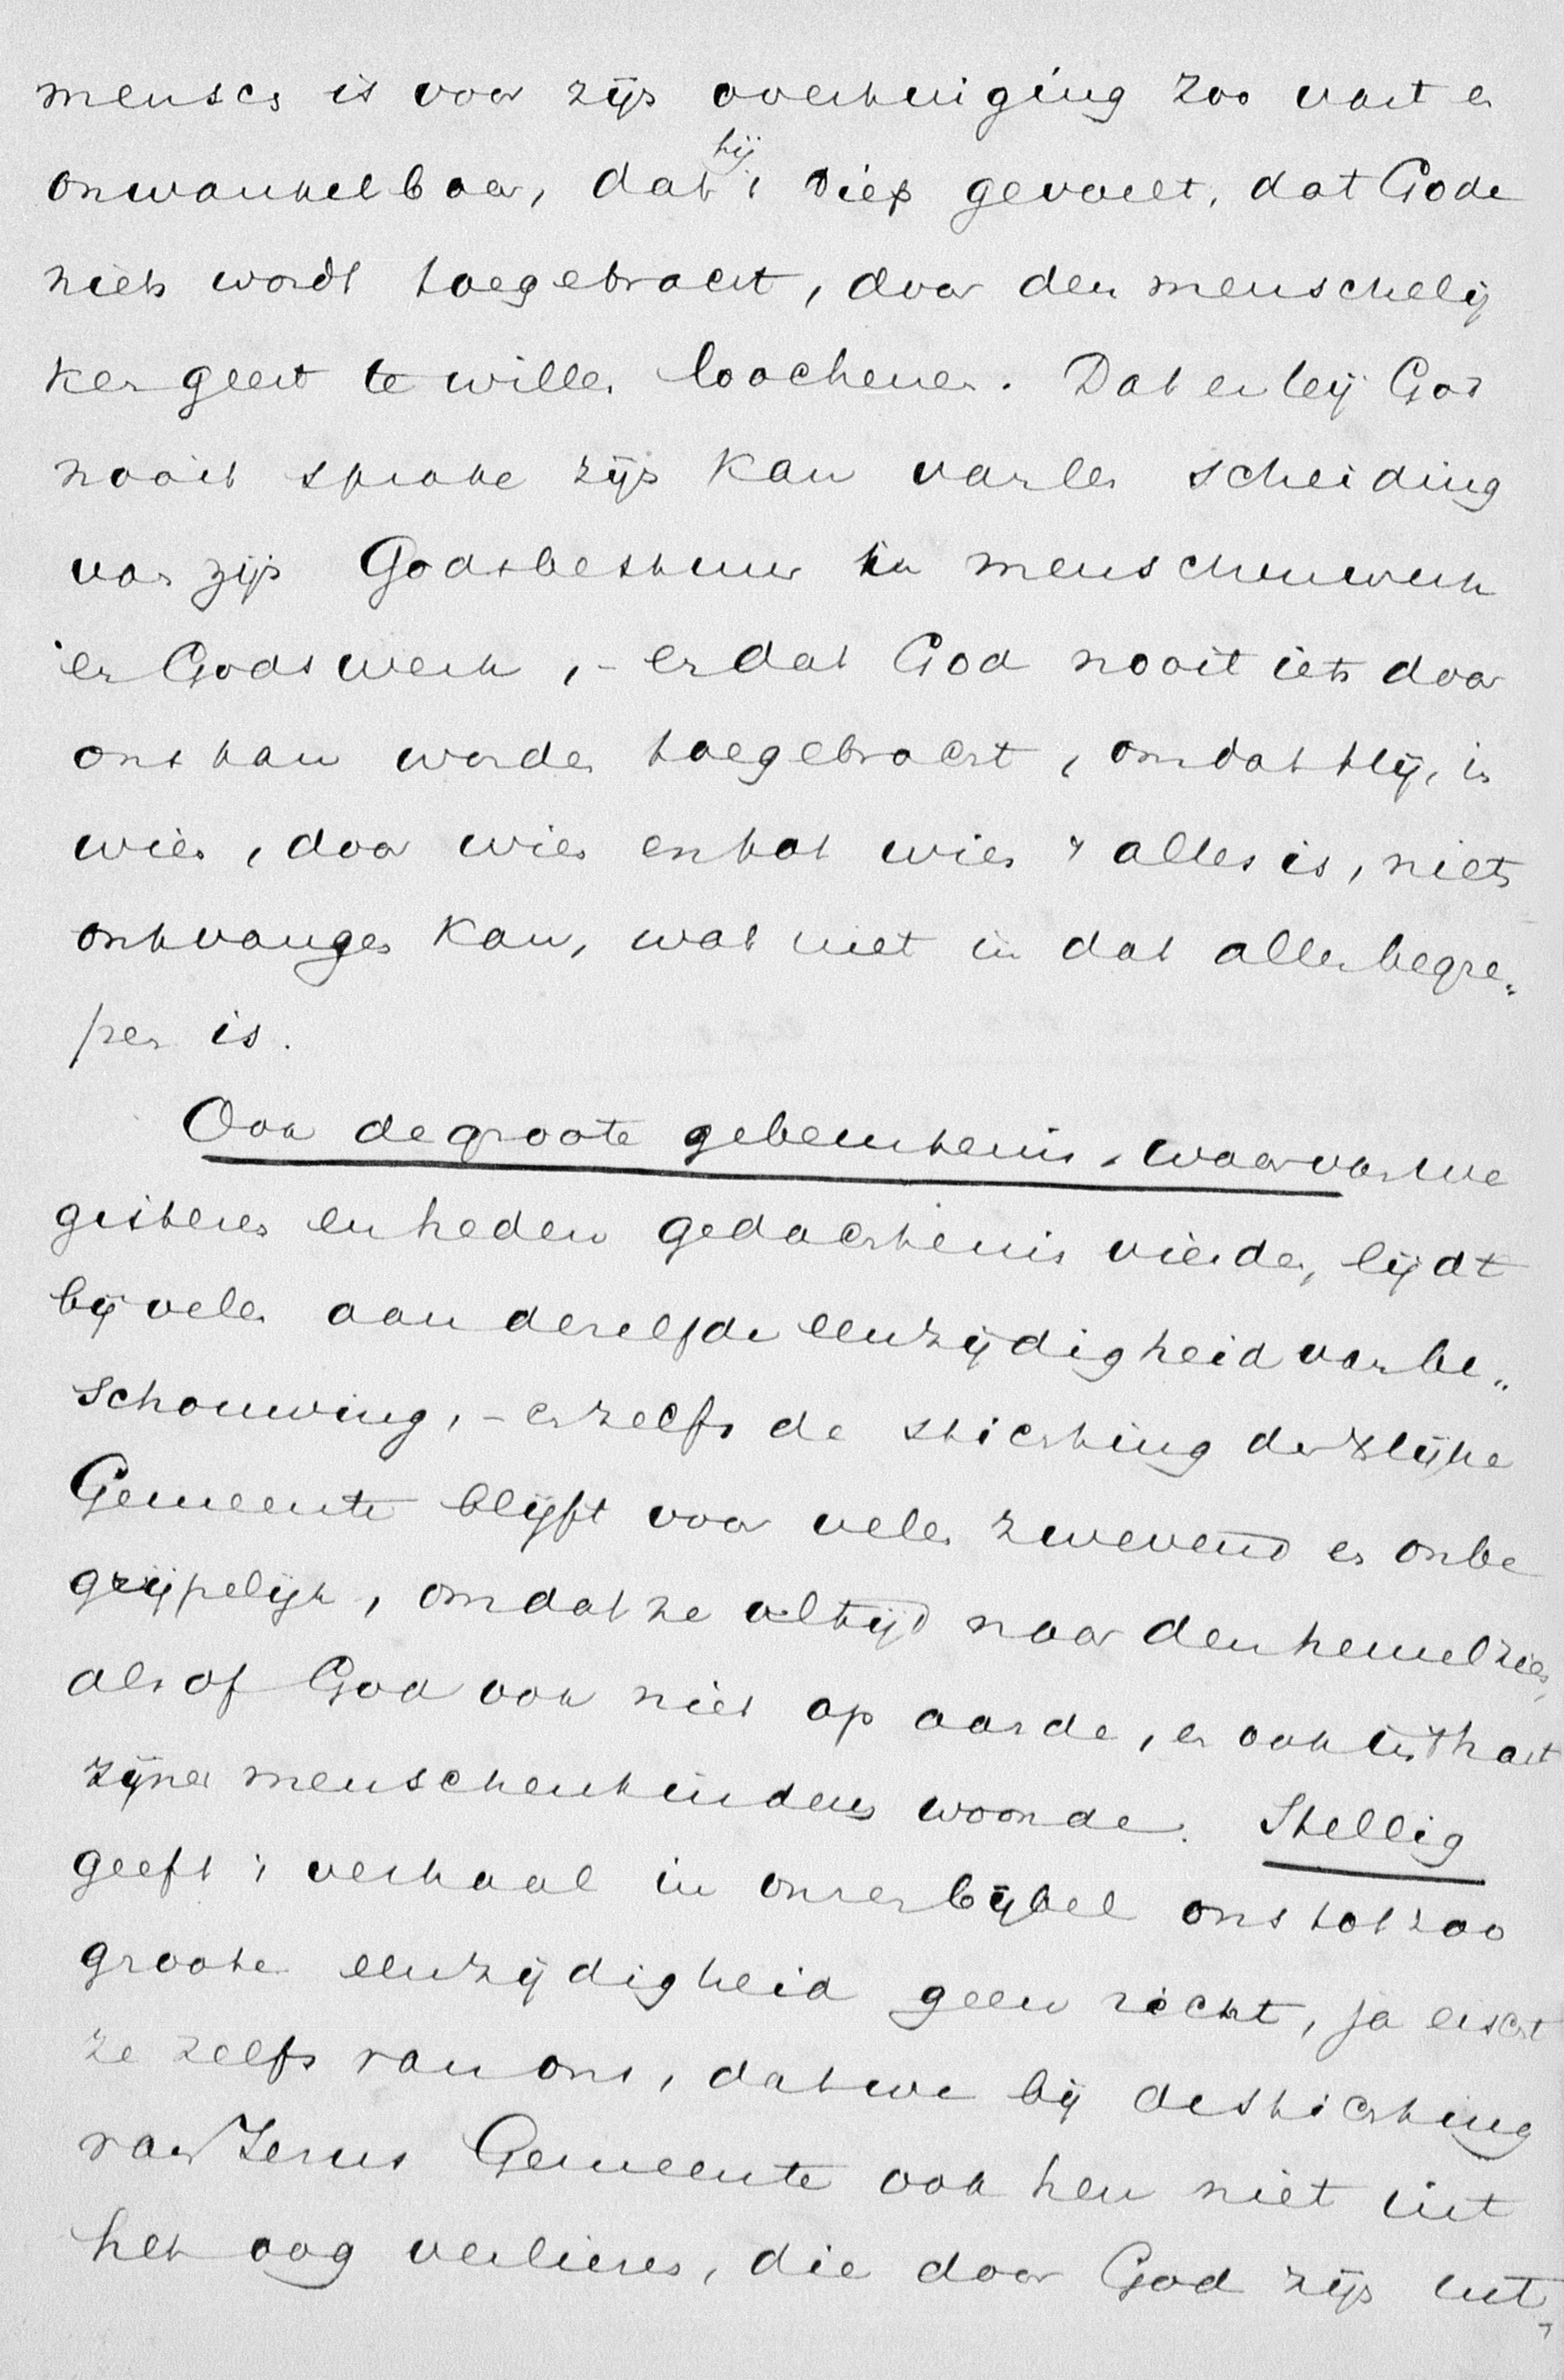 mensch is voor zijn overtuiging zoo vast en
onwankelbaar, dat hij 't diep gevoelt, dat Gode
niets wordt toegebracht, door den menschelij
ken geest te willen loochenen. Dat er bij God
nooit sprake zijn kan van een scheiding
van zijn Godsbestuur in menschenwerk
en Godswerk, - en dat God nooit iets door
ons kan worden toegebracht, omdat Hij, in
wien, door wien en tot wien 't alles is, niets
ontvangen kan, wat niet in dat alles begre„
pen is.
Ook de groote gebeurtenis, waarvan we
gisteren en heden gedachtenis vierden, lijdt
bij velen aan dezelfde eenzijdigheid van be„
schouwing, - en zelfs de stichting der Xlijke
Gemeente blijft voor velen zwevend en onbe
grijpelijk, omdat ze altijd naar den hemel zien,
alsof God ook niet op aarde, en ook in 't hart
zijner menschenkinderen woonde. Stellig
geeft 't verhaal in onzen bijbel ons tot zoo
groote eenzijdigheid geen recht, ja eischt
ze zelfs van ons, dat we bij de stichting
van Jezus Gemeente ook hen niet uit
het oog verliezen, die door God zijn uit„